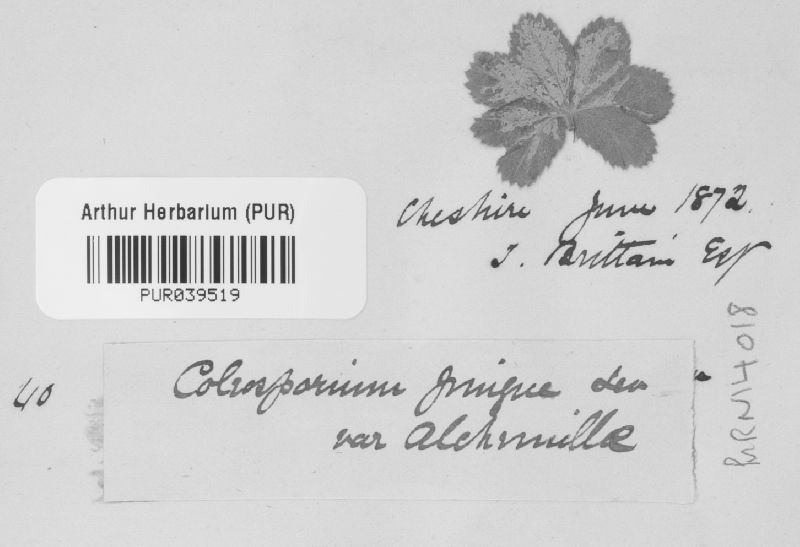 Cheshire June 1872.
J. Brittain Esq
Arthur Herbarium (PUR)
PUR039519
PURN14018
40
Coleosporium pingue Lev
var Alchemillæ